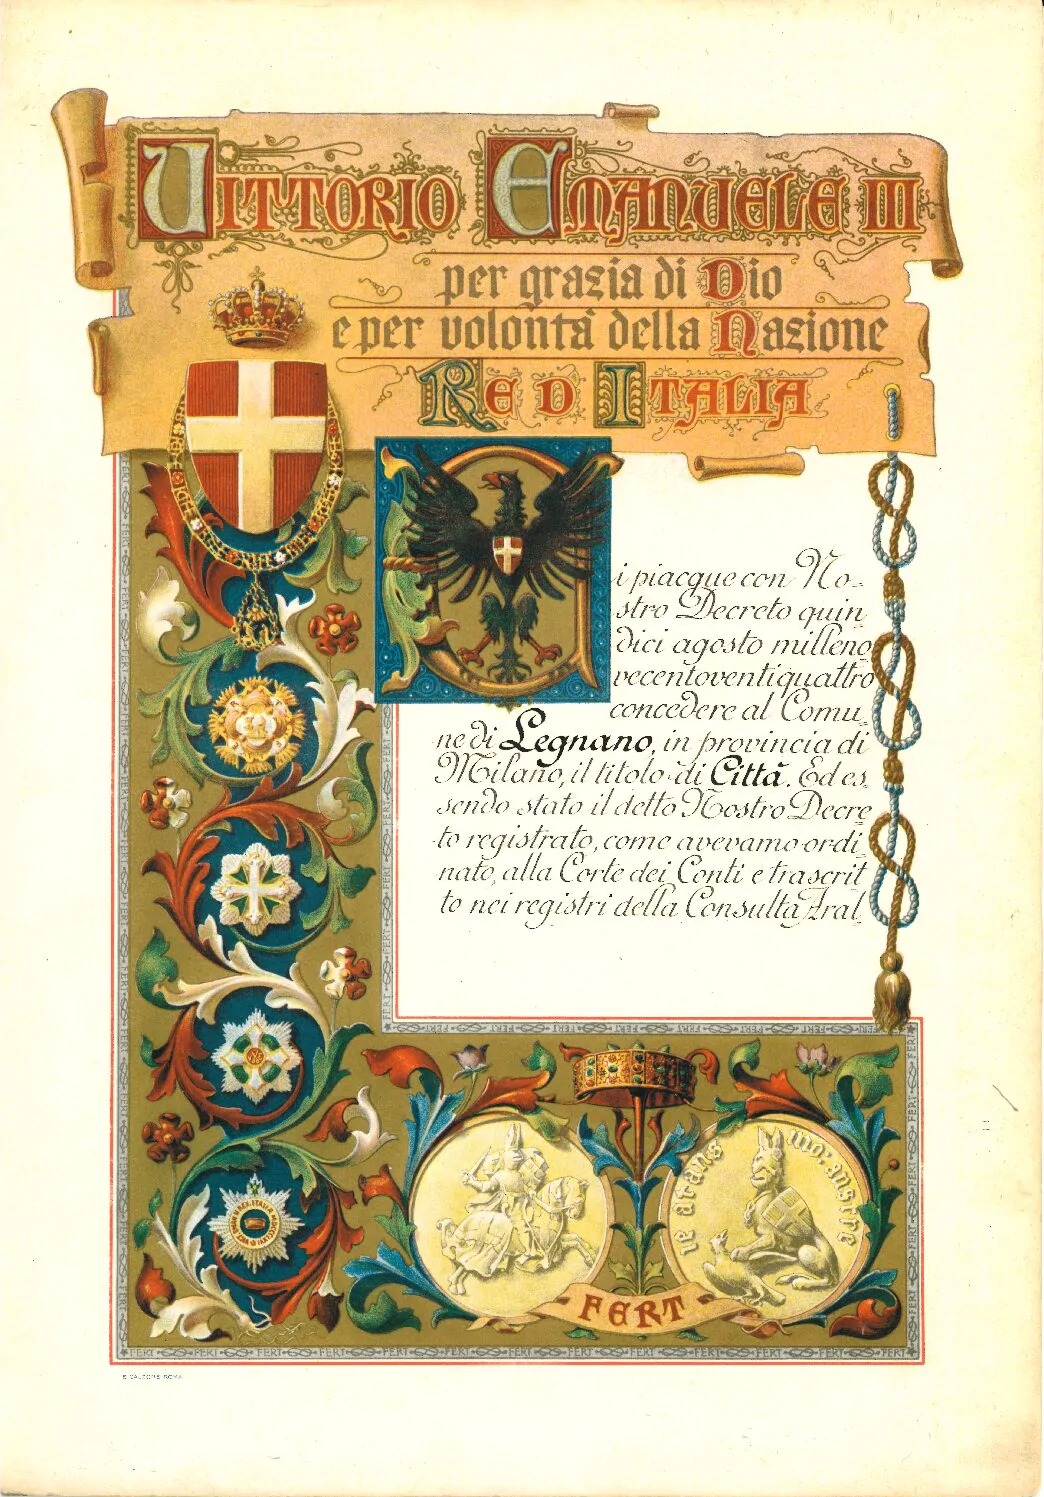 VITTORIO EMANUELE III
per grazia di Dio
e per volontà della Nazione
RE D ITALIA
Ci piacque con No-
stro Decreto quin
dici agosto milleno
vecentoventiquattro
concedere al Comu-
ne di Legnano, in provincia di
Milano, il titolo di Città. Ed es-
sendo stato il detto Nostro Decre
to registrato, come avevamo ordi-
nato, alla Corte dei Conti e trascrit
to nei registri della Consulta Aral
FERT FERT FERT FERT FERT FERT
je atans
mor anstre
FERT
FERT FERT FERT FERT FERT FERT FERT FERT FERT FERT FERT FERT FERT
ROMA